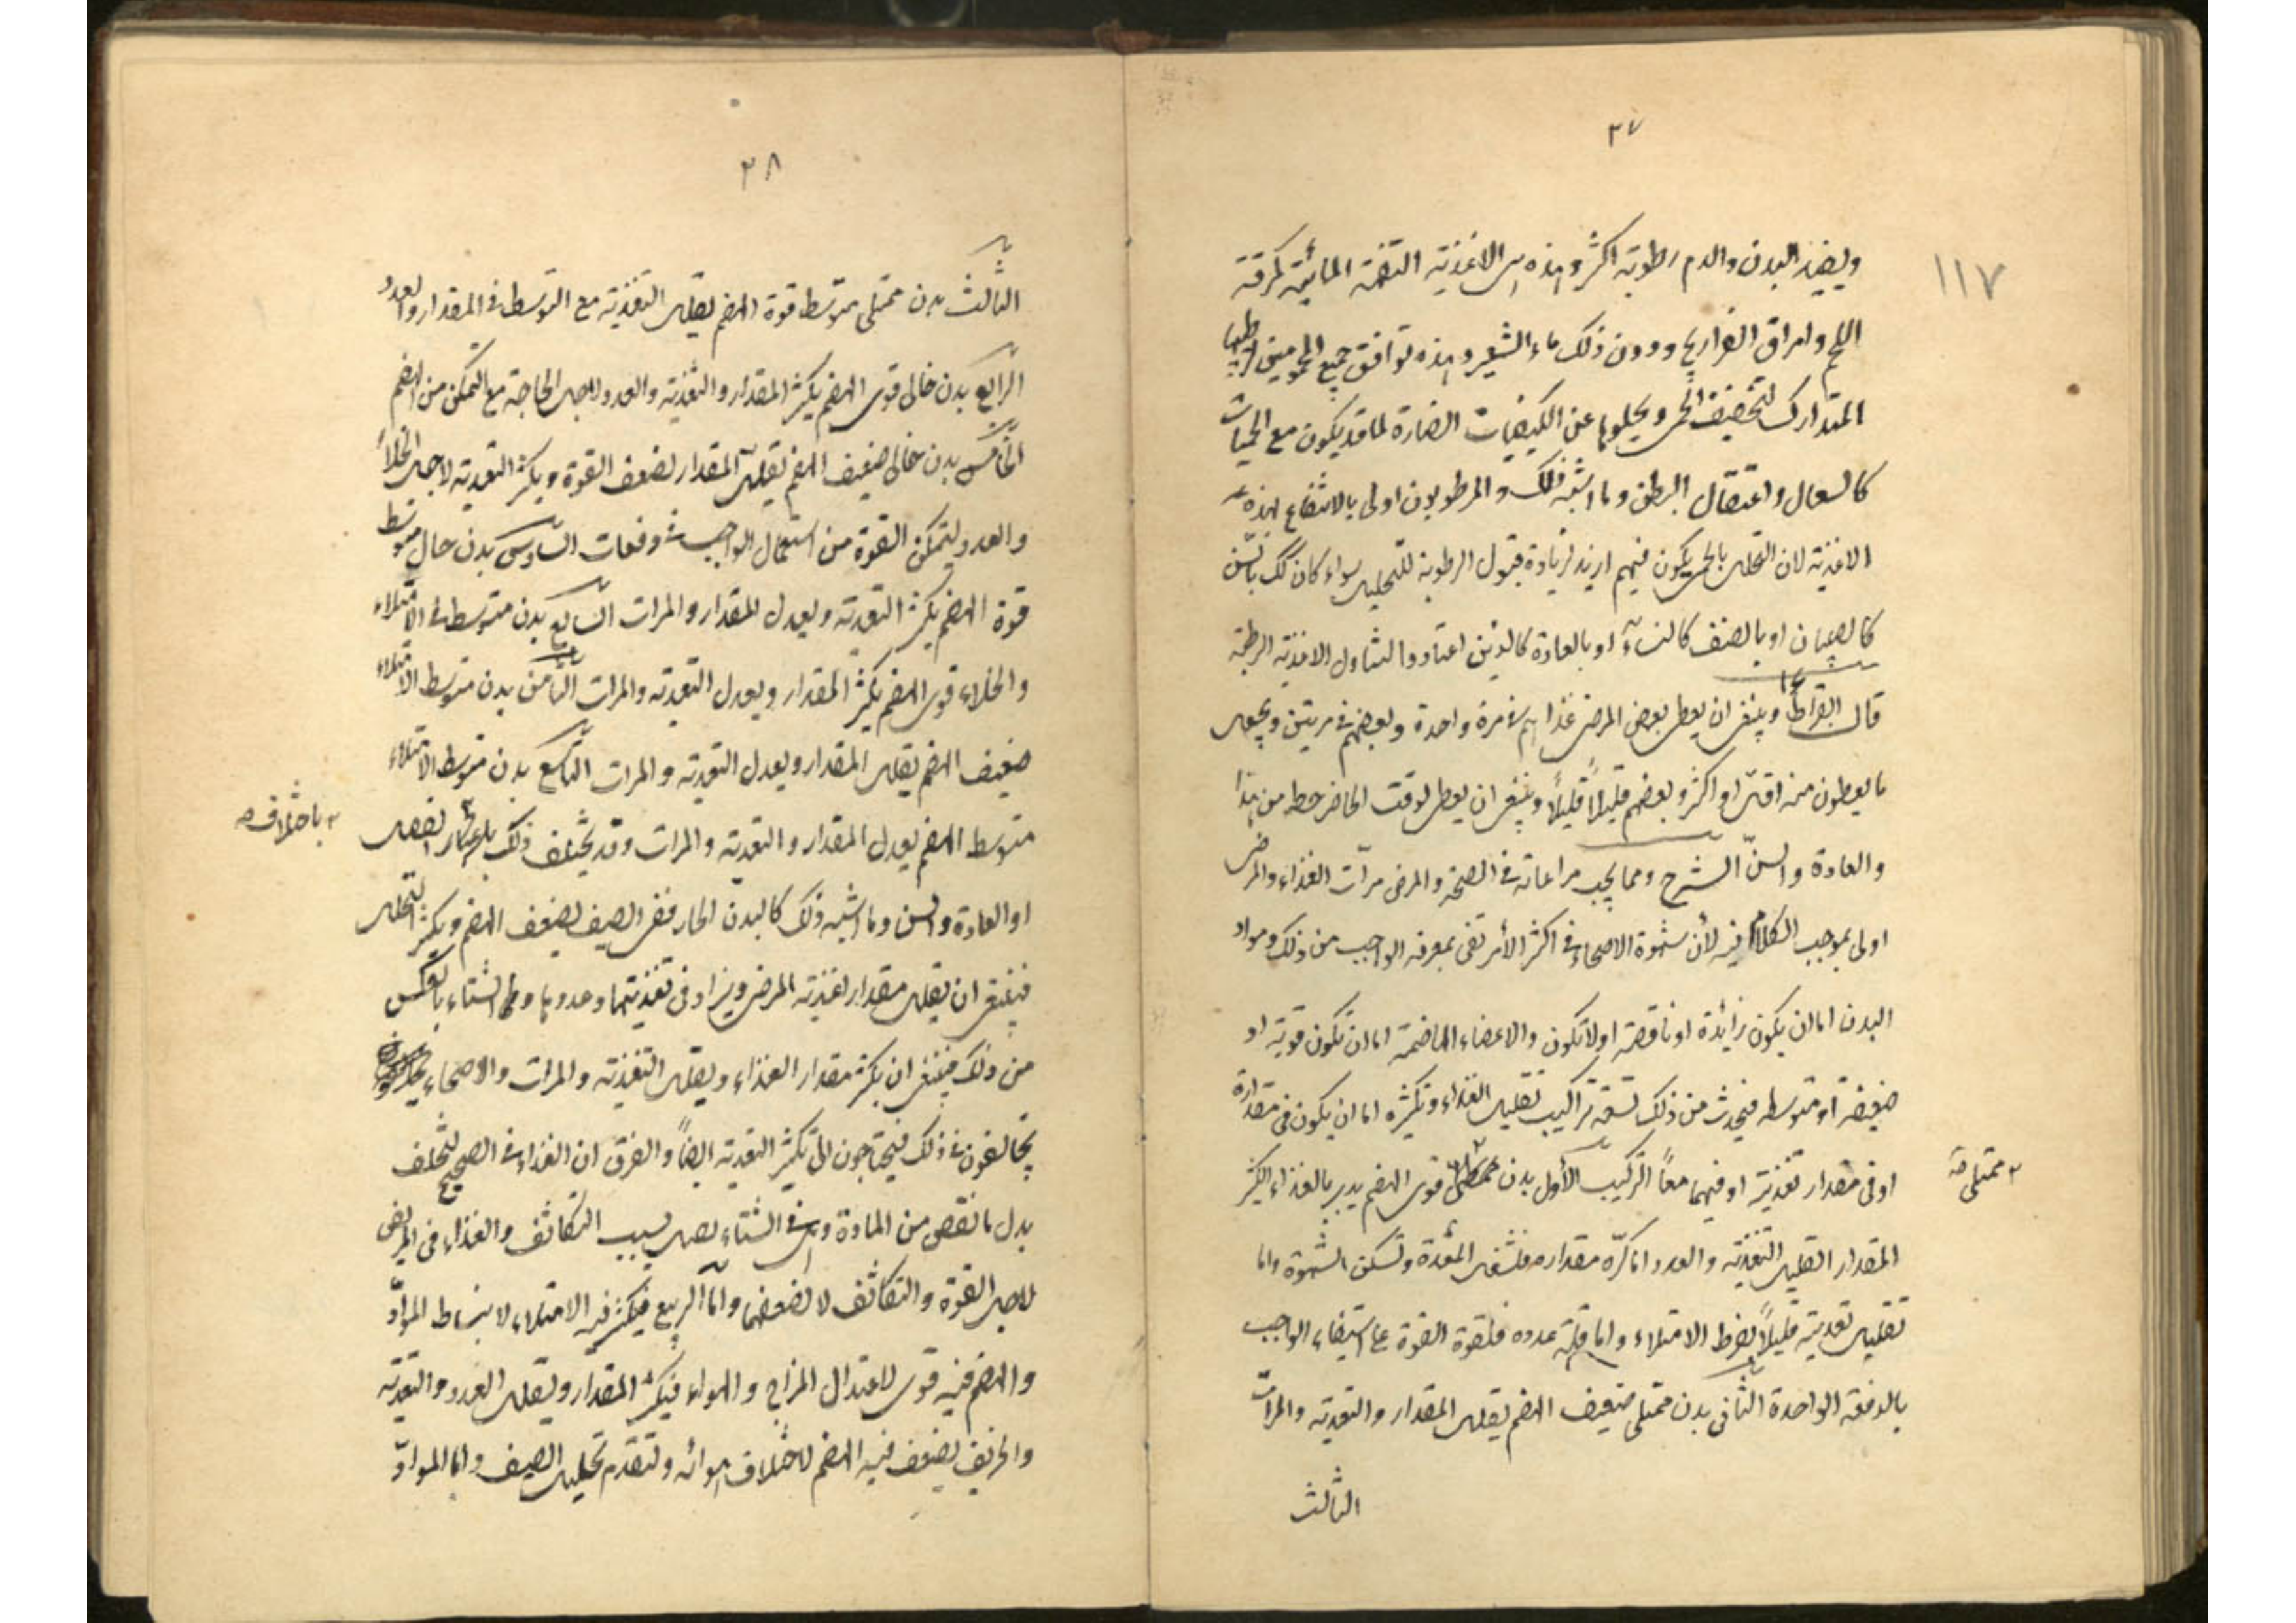 ٣٧
١١٧
ويفيد البدن والدم رطوبته اكثر وهذه هى الاغذية التفهة المائية كمرقة
اللحم وامراق الفراريج ودون ذلك ماء الشعير وهذه توافق جميع المحمومين لترطيبها
المتدارك لتجفيف الحمى ويخلوها عن الكيفيات الضارة لما قد يكون مع الحميات
كالسعال واعتقال البطن وما اشبه ذلك والمرطوبون اولى بالانتفاع بهذه
الاغذية لان التحلل بالحمى يكون فيهم ازيد لزيادة قبول الرطوبة للتحليل سواء كان ذلك بالسن
كالصبيان او بالصنف كالنساء او بالعادة كالذين اعتادوا التناول الاغذية الرطبة
قال ابقراط وينبغى ان يعطى بعض المرضى غذاهم فى مرة واحدة وبعضهم فى مرتين ويجعل
ما يعطون منه اقل او اكثر وبعضهم قليلاً قليلاً وينبغى ان يعطى لوقت الحاضر حظه من هذا
والعادة والسنّ الشرح ومما يجب مراعاته فى الصحة والمرض مرّات الغذاء والمرض
اولى بموجب الكلام فيه لأن شهوة الاصحاء فى اكثر الأمر تفى بمعرفة الواجب من ذلك ومواد
البدن اما ان يكون زائدة او ناقصة او لا تكون والاعضاء الهاضمة اما ان تكون قوية او
ضعيفة او متوسطه فيحدث من ذلك تسعة تراكيب تقليل الغذاء وتكثيره اما ان يكون فى مقداره
او فى مقدار تغذيته او فيهما معاً التركيب الأول بدن قوى الهضم يدبر بالغذاء الكثير
ممتلى صه
المقدار القليل التغذية والعدد اما كثرة مقداره فلتشغل المعدة وتسكن الشهوة واما
تقليل تغذيته قليلاً لفرط الامتلاء واما قلة عدده فلقوة القوة على استيفاء الواجب
بالدفعة الواحدة الثانى بدن ممتلى ضعيف الهضم يقلل المقدار والتغذية والمرات
الثالث
٣٨
الثالث بدن ممتلى متوسط قوة الهضم يقلل التغذية مع التوسط فى المقدار والعدد
الرابع بدن خالى قوى الهضم يكثر المقدار والتغذية والعدد لاجل الحاجة مع التمكن من الهضم
الخامس بدن خالى ضعيف الهضم يقلل المقدار لضعف القوة ويكثر التغذية لاجل الخلاء
والعدد لتمكن القوة من استعمال الواجب فى دفعات السادس بدن خال متوسط
قوة الهضم يكثر التغذية ويعدل المقدار والمرات السابع بدن متوسط فى الامتلاء
والخلاء قوى الهضم يكثر المقدار ويعدل التغذية والمرات الثامن بدن متوسط الامتلاء
ضعيف الهضم يقلل المقدار ويعدل التغذية والمرات التاسع بدن متوسط الامتلاء
متوسط الهضم يعدل المقدار والتغذية والمرات وقد يختلف ذلك الفصل
باختلاف صه
او العادة والسن وما اشبه ذلك كالبدن الحار ففى الصيف يضعف الهضم ويكثر التحلل
فينبغى ان يقلل مقدار اغذية المرضى ويزاد فى تغذيتها وعددها واما الشتاء بالعكس
من ذلك فينبغى ان يكثر مقدار الغذاء ويقلل التغذية والمرات والاصحاء
يخالفون فى ذلك فيحتاجون الى تكثير التغذية ايضاً والفرق ان الغذاء فى الصحيح لتخلف
بدل ما نقص من المادة وهى فى الشتاء بسبب التكاثف والغذاء فى المرضى
لاجل القوة والتكاثف لا لضعفها واما الربيع فيكثر فيه الامتلاء لانبساط المواد
والهضم فيه قوى لاعتدال المزاج والهواء فيكثر المقدار ويقلل العدد والتغذية
والخريف يضعف فيه الهضم لاختلاف هوائه ولتقدم تحليل الصيف واما المواد